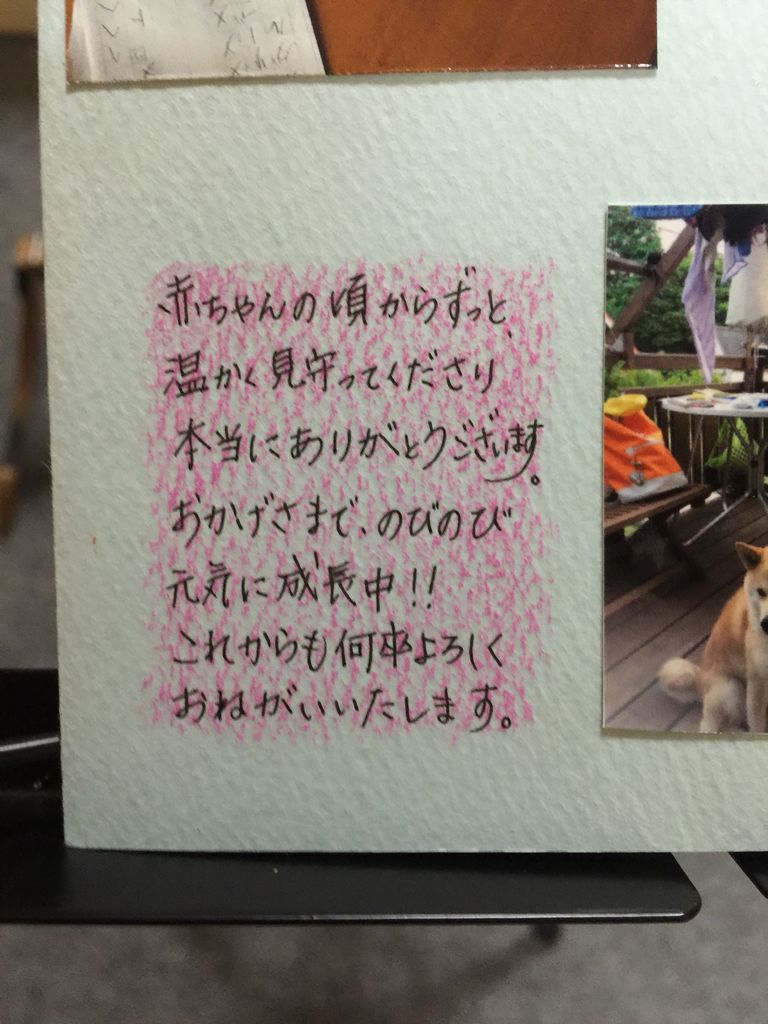 赤ちゃんの頃からずっと、
温かく見守ってくださり
本当にありがとうございます。
おかげさまで、のびのび
元気に成長中!!
これからも何卒よろしく
おねがいいたします。